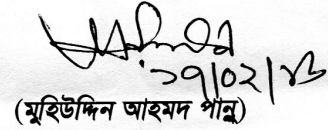 ১৭/০২/১৩
(মুহিউদ্দিন আহমদ পানু)